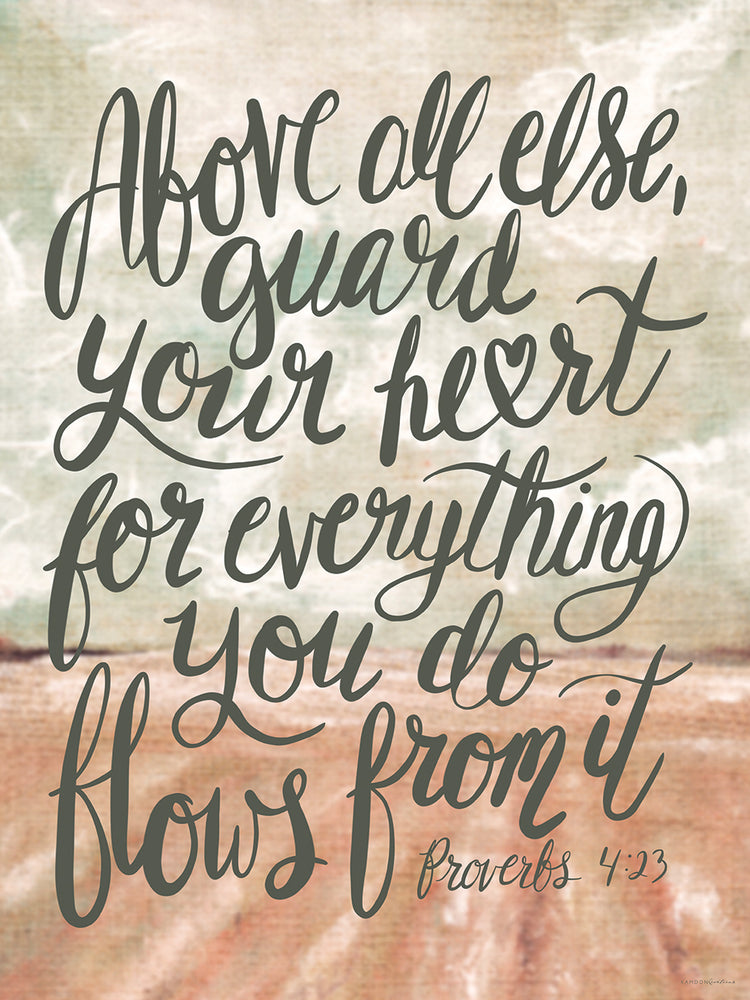 Above all else,
guard
your heart
for everything
you do
flows from it
Proverbs 4:23